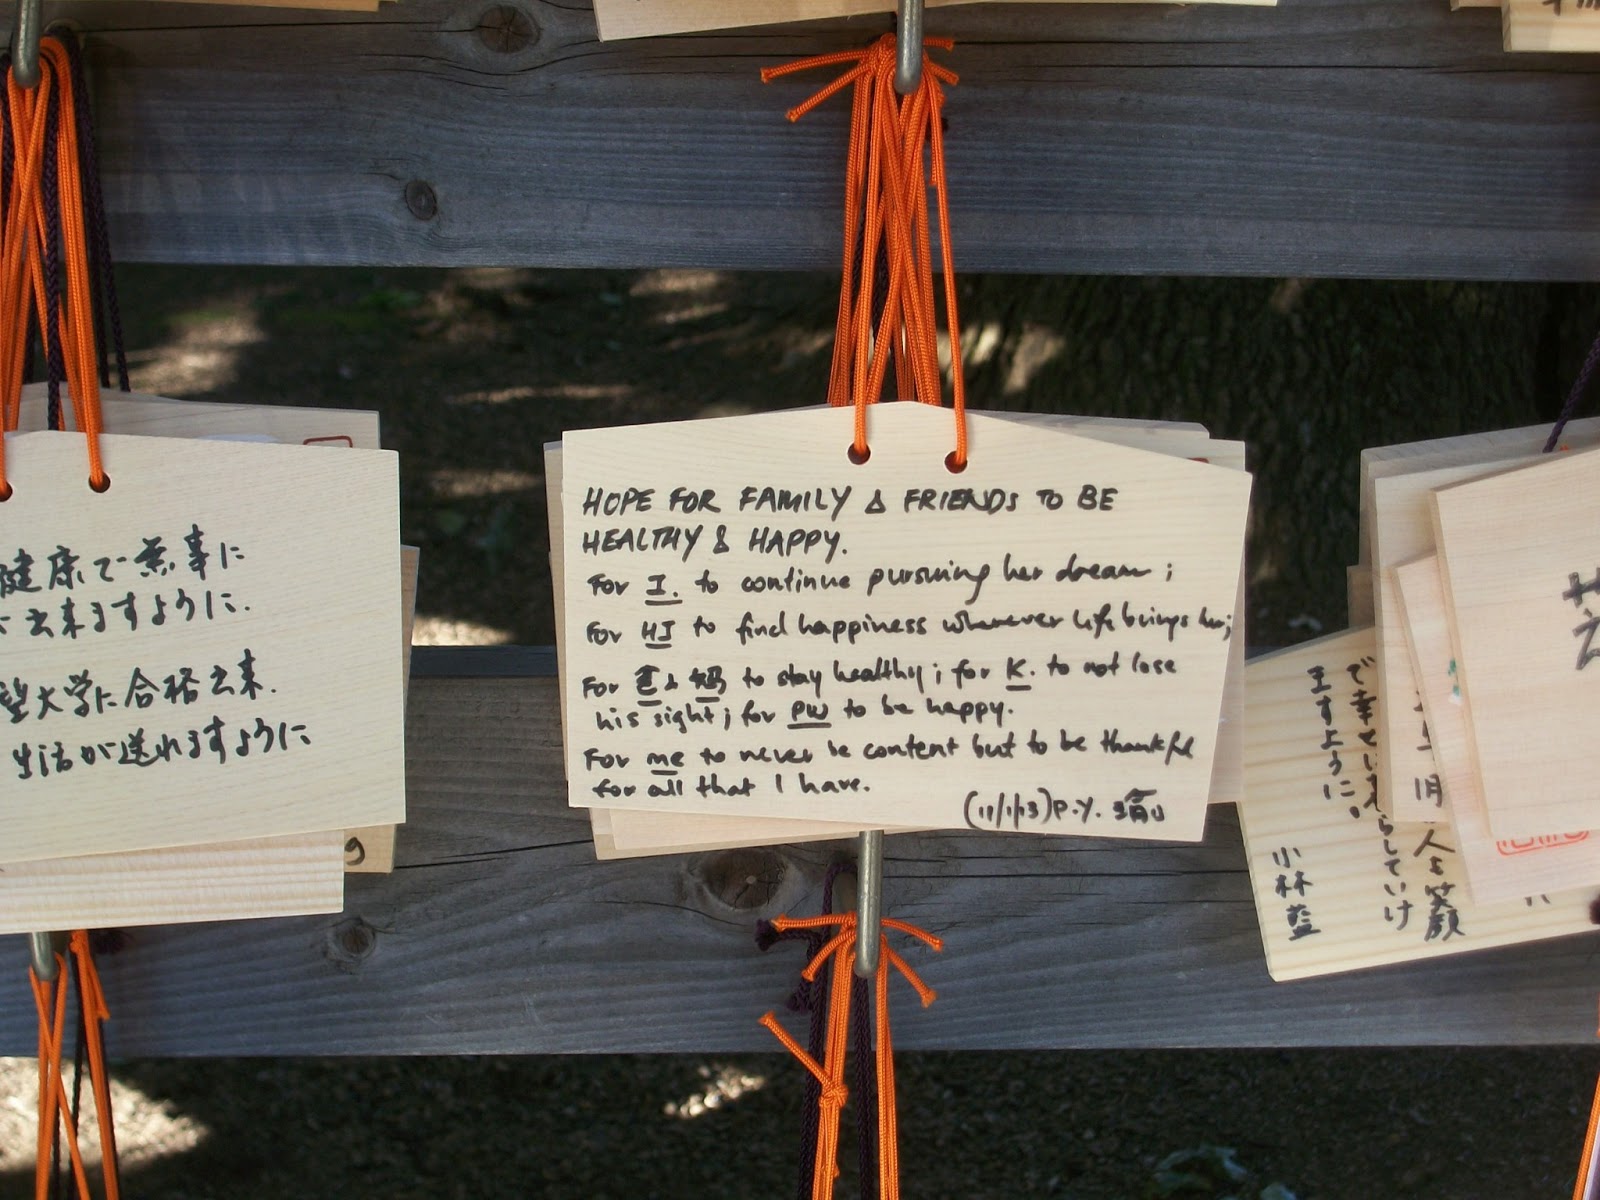 健康で無事に
出来ますように.
望大学に合格出来.
生活が送れますように
9
HOPE FOR FAMILY & FRIENDS TO BE
HEALTHY & HAPPY.
For I. to continue pursuing her dream;
For HJ to find happiness wherever life brings her;
For & to stay healthy; for K. to not lose
his sight; for PW to be happy.
For me to never be content but to be thankful
for all that I have.
(11/1/13) P.Y.
人も笑顔
で幸せい
らしていけ
ますように。
小林藍